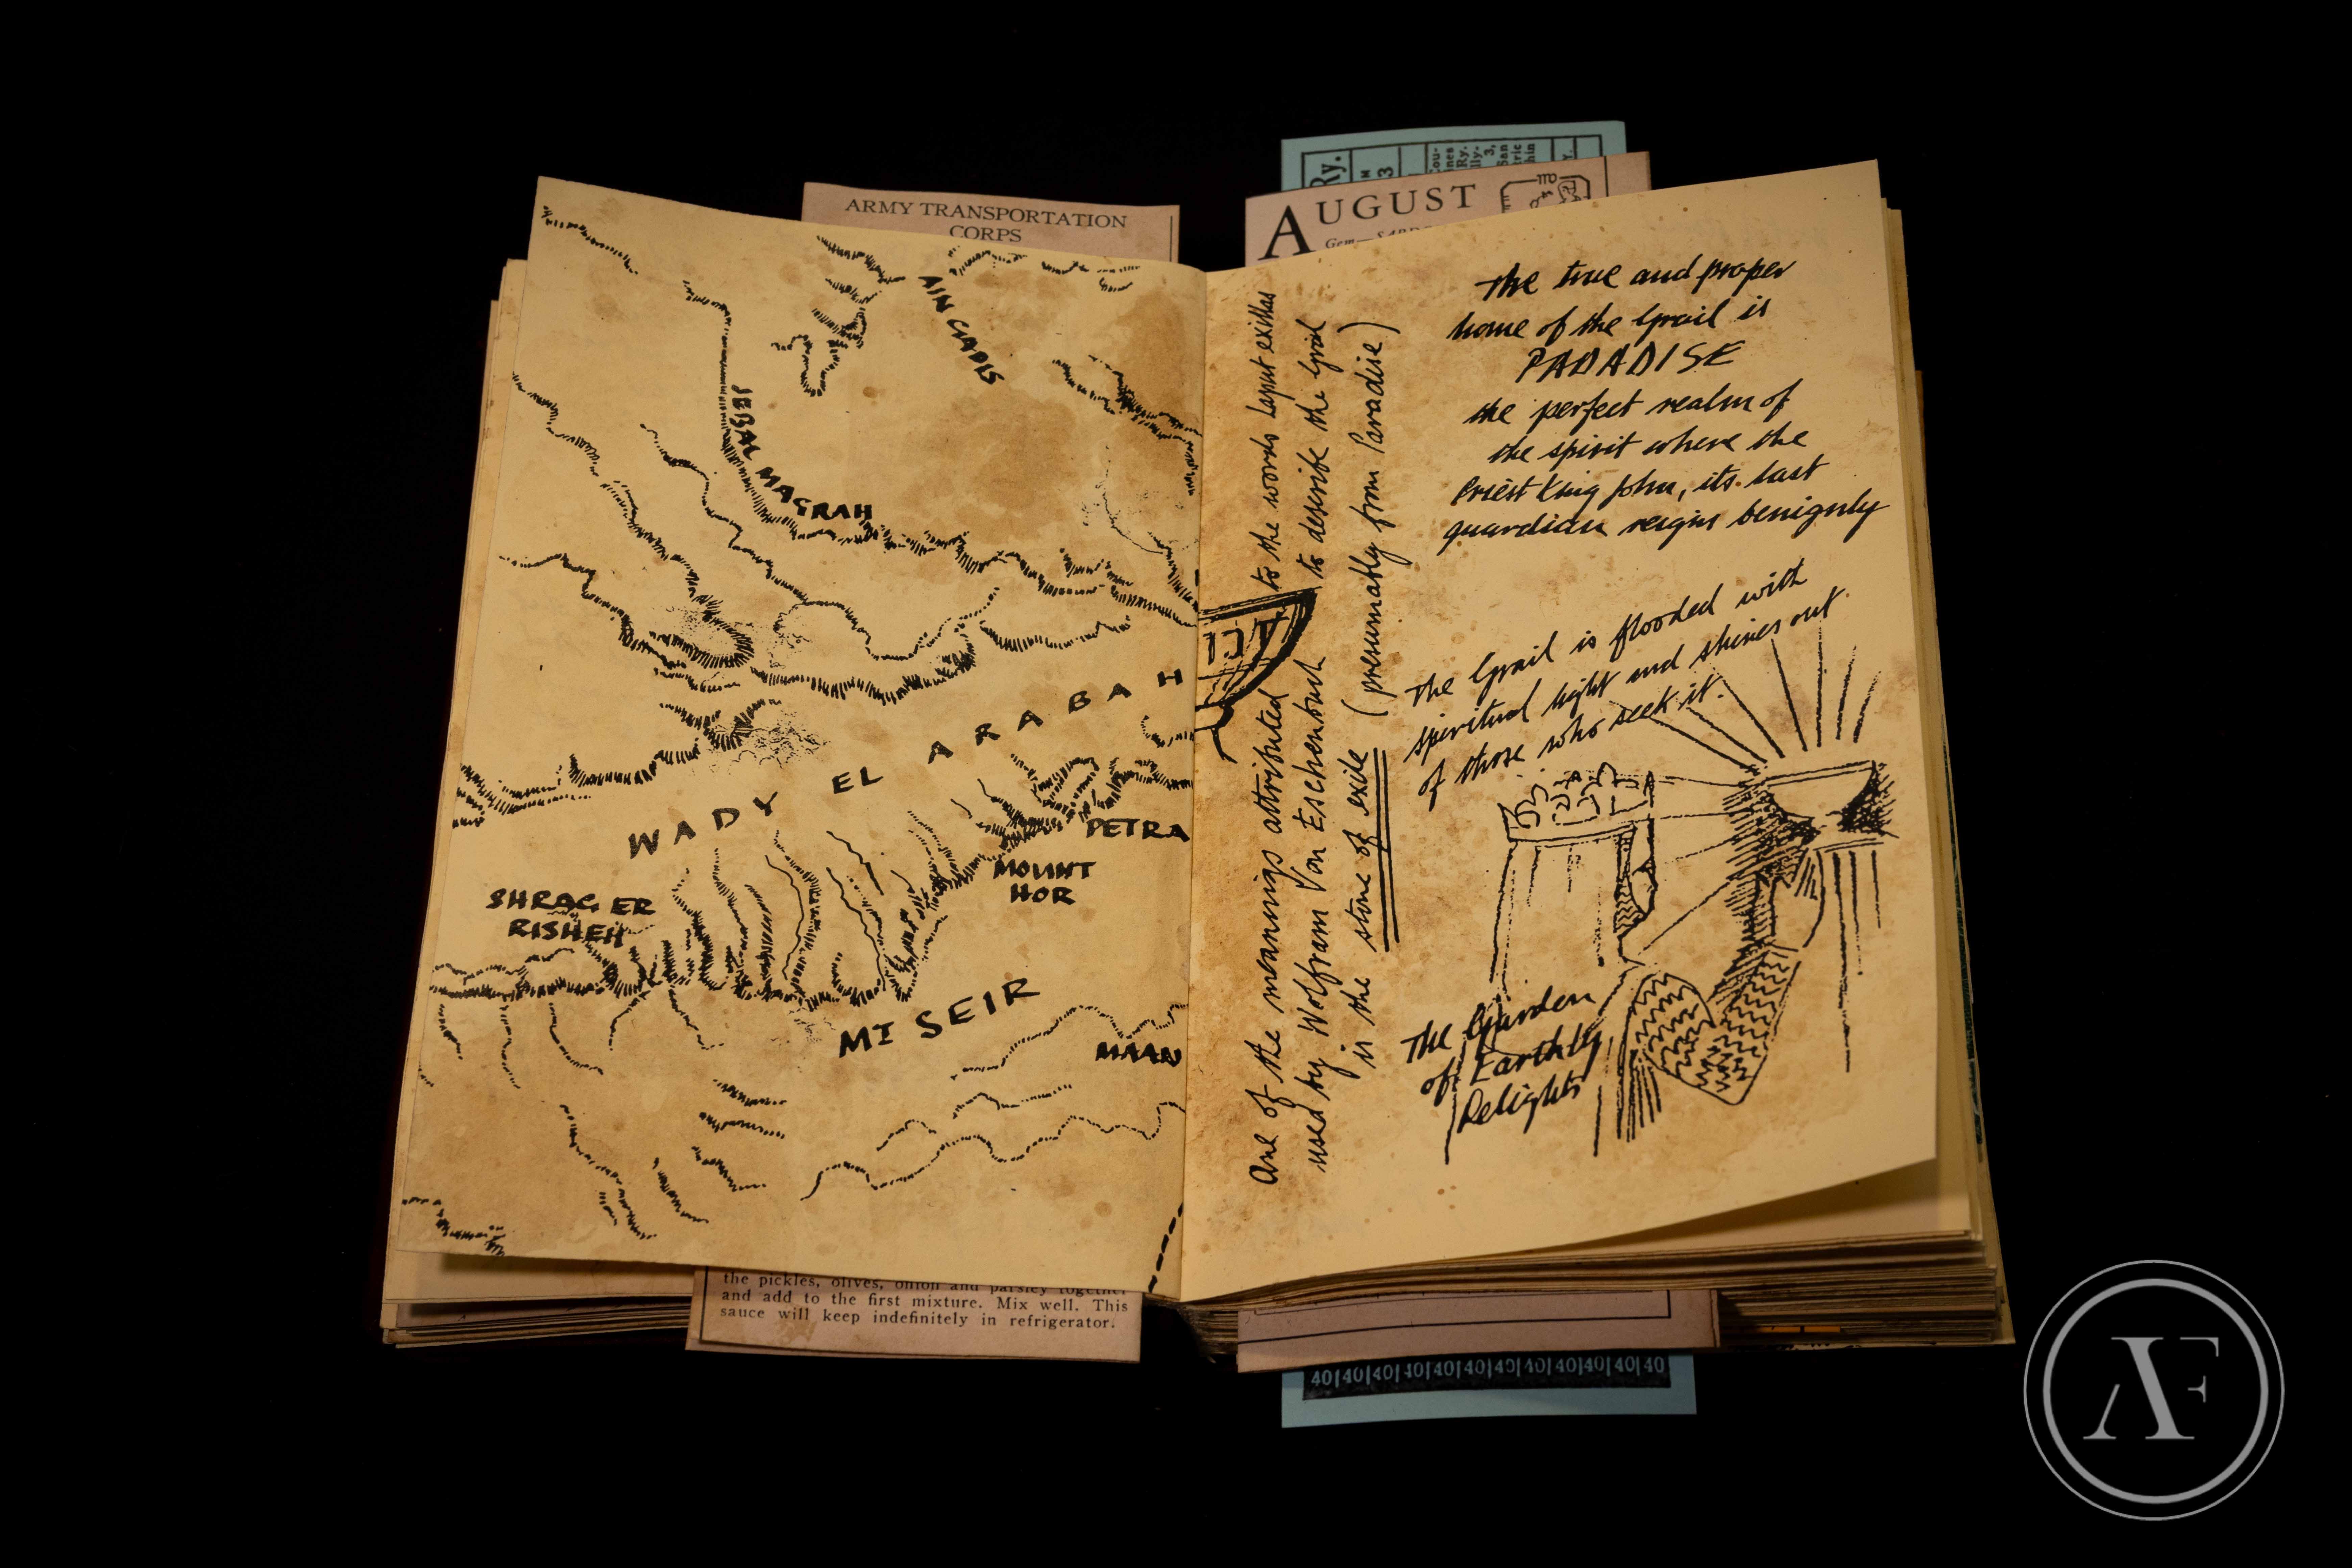 ARMY TRANSPORTATION
CORPS
AIN GADIS
JEBAL MAGRAH
WADY EL ARABAH
PETRA
MOUNT
HOR
SHRAG ER
RISHEH
MT SEIR
MAAN
the pickles, olives, onion and parsley together
and add to the first mixture. Mix well. This
sauce will keep indefinitely in refrigerator.
Ry.
3
Ry.
3,
San
AUGUST
Gem
all
One of the meanings attributed to the words Laput exillas
used by Wolfram Von Eschenbach to describe the Grail
is the stone of exile (presumably from Paradise)
The true and proper
home of the Grail is
PARADISE
the perfect realm of
the spirit where the
Priest King John, its last
guardian reigns benignly
The Grail is flooded with
spiritual light and shines out
of those who seek it.
The Garden
of Earthly
Delights
40|40|40|40|40|40|40|40|40|40|40|40
AF